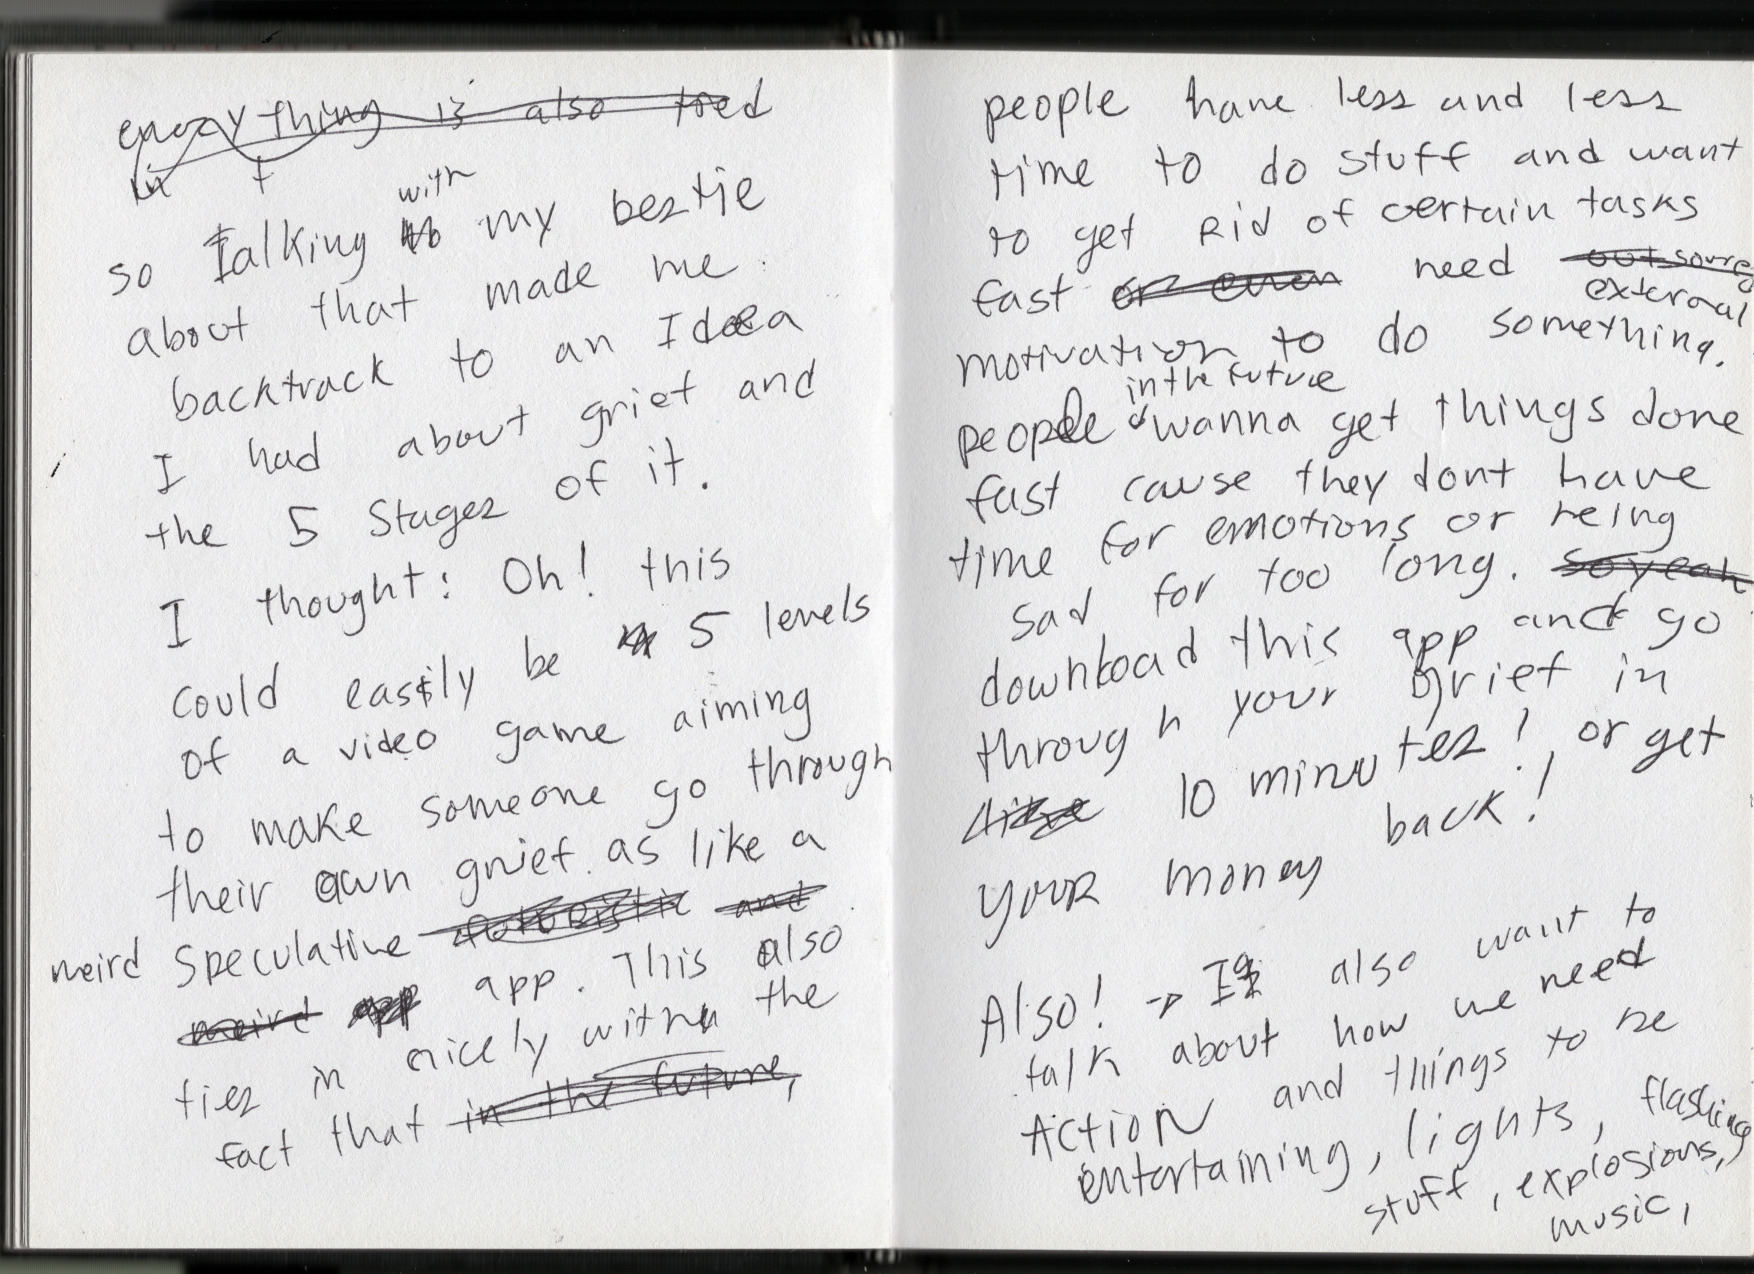 everything is also tied
in t
so talking with my bestie
about that made me
backtrack to an Idea
I had about grief and
the 5 Stages of it.
I thought: Oh! this
could easily be 5 levels
of a video game aiming
to make someone go through
their own grief. as like a
weird speculative futuristic and
weird app app. This also
ties in nicely with the
fact that in the future,
people have less and less
time to do stuff and want
to get Rid of certain tasks
fast or even need outsourc
external
motivation to do something.
in the future
people wanna get things done
fast cause they dont have
time for emotions or being
sad for too long. so yeah
download this app and go
through your grief in
like 10 minutes! or get
your money back!
Also! → I also want to
talk about how we need
Action and things to be
entertaining, lights, flashing
stuff, explosions,
music,